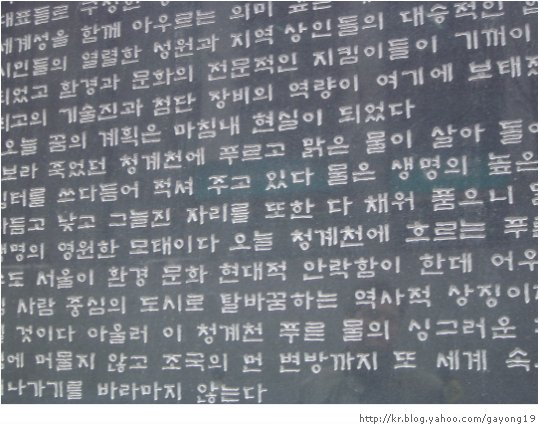 대표들로 구성된
세계성을 함께 아우르는 의미
시민들의 열렬한 성원과 지역 상인들의 대승적인
되었고 환경과 문화의 전문적인 지킴이들이 기꺼이
최고의 기술진과 첨단 장비의 역량이 여기에 보태
오늘 꿈의 계획은 마침내 현실이 되었다
보라 죽었던 청계천에 푸르고 맑은 물이 살아
쓰다듬어 적셔 주고 있다 물은 생명의 높은
낮고 그늘진 자리를 또한 다 채워 품으니
영원한 모태이다 오늘 청계천에 흐르는 푸른
서울이 환경 문화 현대적 안락함이 한데
사람 중심의 도시로 탈바꿈하는 역사적 상징이
것이다 아울러 이 청계천 푸른 물의 싱그러운
에 머물지 않고 조국의 먼 변방까지 또 세계 속
나가기를 바라마지 않는다
http://kr.blog.yahoo.com/gayong19